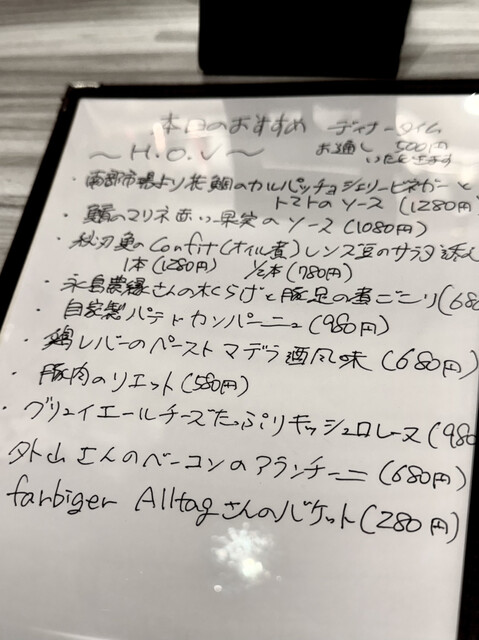 本日のおすすめ ディナータイム
〜H.O.V〜 お通し 500円
いただきます
・南部市場より花鯛のカルパッチョ シェリービネガーと
トマトのソース (1280円)
・鯖のマリネ 赤い果実のソース (1080円)
・秋刀魚のConfit(オイル煮) レンズ豆のサラダ添え
1本(1280円) 1/2本(780円)
・永島農縁さんの木くらげと豚足の煮こごり(680
・自家製パテドカンパーニュ(980円)
・鶏レバーのペースト マデラ酒風味 (680円)
・豚肉のリエット(580円)
・グリュイエールチーズたっぷりキッシュロレーヌ(980
外山さんのベーコンのアランチーニ(680円)
farbiger Alltagさんのバケット(280円)